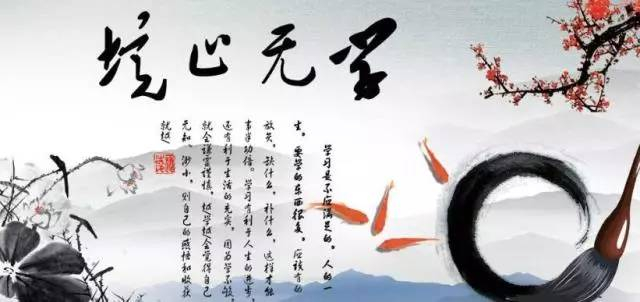 学无止境
学习是不应满足的。人的一
生，要学的东西很多，应该有的
放矢，缺什么，补什么，这样才能
事半功倍。学习有利于人生的进步，
还有利于生活的充实，因为学不够，
就会谦虚谨慎，越学越会觉得自己
无知、渺小，到自己的感悟和收获
就越